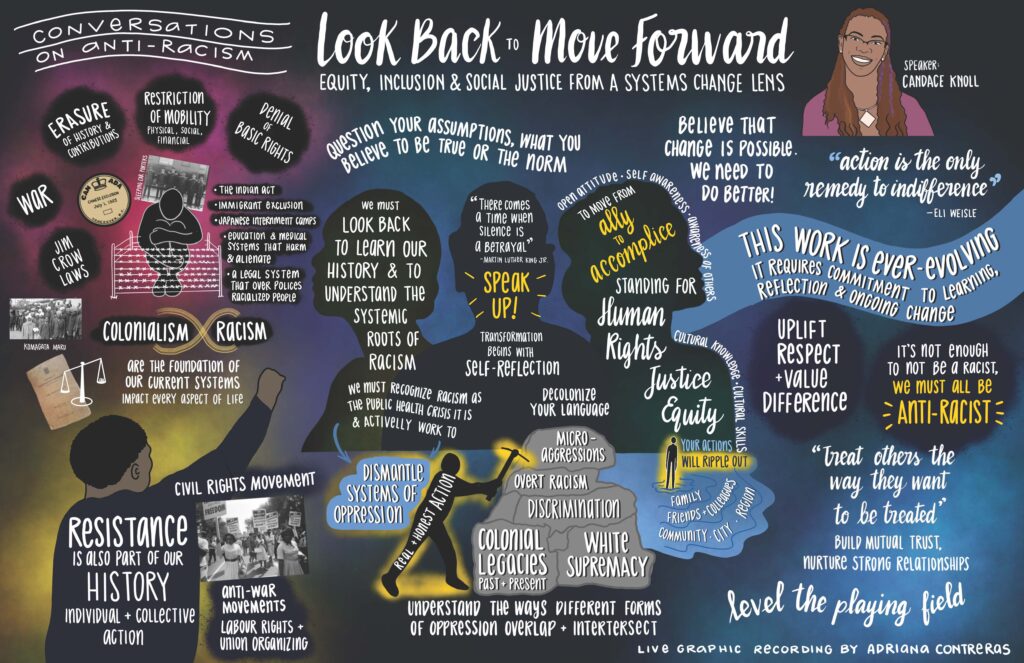 CONVERSATIONS
ON ANTI-RACISM
Look Back to Move Forward
EQUITY, INCLUSION & SOCIAL JUSTICE FROM A SYSTEMS CHANGE LENS
SPEAKER:
CANDACE KNOLL
ERASURE
OF HISTORY &
CONTRIBUTIONS
RESTRICTION
OF MOBILITY
PHYSICAL, SOCIAL,
FINANCIAL
DENIAL
OF
BASIC RIGHTS
WAR
JIM
CROW
LAWS
SLEEPING CAR PORTERS
CANADA
CHINESE EXCLUSION
July 1, 1923
• THE INDIAN ACT
• IMMIGRANT EXCLUSION
• JAPANESE INTERNMENT CAMPS
• EDUCATION & MEDICAL
SYSTEMS THAT HARM
& ALIENATE
• A LEGAL SYSTEM
THAT OVER POLICES
RACIALIZED PEOPLE
KOMAGATA MARU
COLONIALISM
RACISM
ARE THE FOUNDATION OF
OUR CURRENT SYSTEMS
IMPACT EVERY ASPECT OF LIFE
RESISTANCE
IS ALSO PART OF OUR
HISTORY
INDIVIDUAL + COLLECTIVE
ACTION
CIVIL RIGHTS MOVEMENT
FREEDOM
ANTI-WAR
MOVEMENTS
LABOUR RIGHTS +
UNION ORGANIZING
QUESTION YOUR ASSUMPTIONS, WHAT YOU
BELIEVE TO BE TRUE OR THE NORM
WE MUST
LOOK BACK
TO LEARN OUR
HISTORY & TO
UNDERSTAND THE
SYSTEMIC
ROOTS OF
RACISM
WE MUST RECOGNIZE RACISM AS
THE PUBLIC HEALTH CRISIS IT IS
& ACTIVELLY WORK TO
DISMANTLE
SYSTEMS OF
OPPRESSION
"THERE COMES
A TIME WHEN
SILENCE IS
A BETRAYAL"
-MARTIN LUTHER KING JR.
SPEAK
UP!
TRANSFORMATION
BEGINS WITH
SELF-REFLECTION
DECOLONIZE
YOUR LANGUAGE
REAL + HONEST ACTION
MICRO-
AGGRESSIONS
OVERT RACISM
DISCRIMINATION
COLONIAL
LEGACIES
PAST + PRESENT
WHITE
SUPREMACY
UNDERSTAND THE WAYS DIFFERENT FORMS
OF OPPRESSION OVERLAP + INTEKTERSECT
OPEN ATTITUDE · SELF AWARENESS · AWARENESS OF OTHERS
CULTURAL KNOWLEDGE · CULTURAL SKILLS
TO MOVE FROM
ally
TO
accomplice
STANDING FOR
Human
Rights
Justice
Equity
YOUR ACTIONS
WILL RIPPLE OUT
FAMILY
FRIENDS + COLLEAGUES
COMMUNITY · CITY · REGION
BELIEVE THAT
CHANGE IS POSSIBLE.
WE NEED TO
DO BETTER!
"action is the only
remedy to indifference"
- ELI WEISLE
THIS WORK IS EVER-EVOLVING
IT REQUIRES COMMITMENT TO LEARNING,
REFLECTION & ONGOING CHANGE
UPLIFT
RESPECT
+ VALUE
DIFFERENCE
IT'S NOT ENOUGH
TO NOT BE A RACIST,
WE MUST ALL BE
ANTI-RACIST
"treat others the
way they want
to be treated"
BUILD MUTUAL TRUST,
NURTURE STRONG RELATIONSHIPS
level the playing field
LIVE GRAPHIC RECORDING BY ADRIANA CONTRERAS